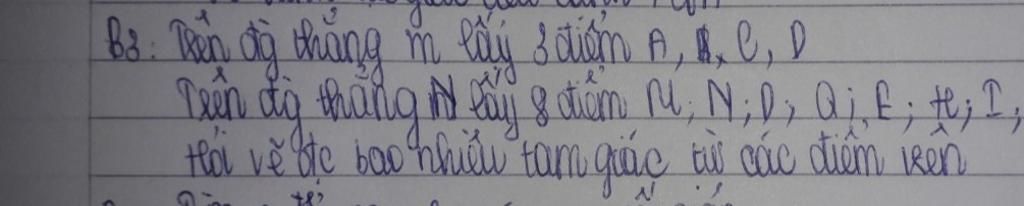 B3: Trên đg thẳng m lấy 3 điểm A, B, C, D
Trên đg thẳng N lấy 8 điểm M; N; D; Q; E; H; I;
Hỏi vẽ đc bao nhiêu tam giác từ các điểm trên